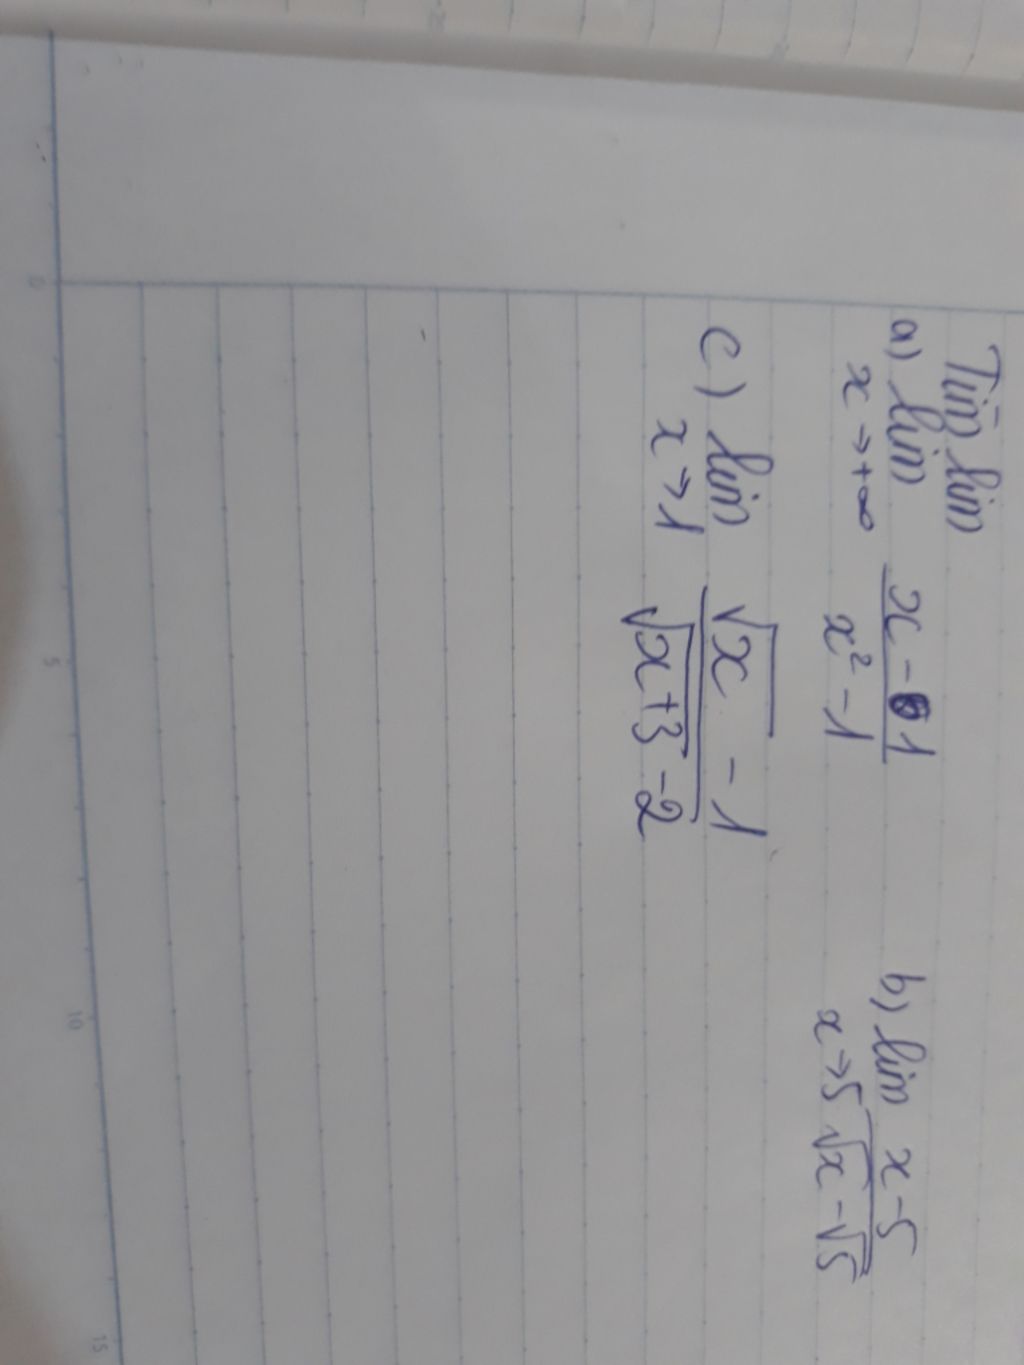 Tìm lim
a) lim x→+∞ (x - 1)/(x² - 1) b) lim x→5 (x-5)/(√x - √5)
c) lim x→1 (√x - 1)/(√(x+3) - 2)
0 5 10 15